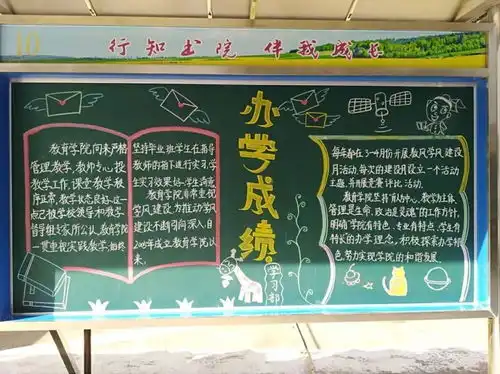 10
行知书院 伴我成长
教育学院向来严格
管理教学,教师专心投
教学工作,课堂教学秩
序正常,教学状态良好,这一
点已被学校领导和教学
督导组专家所公认,教育学院
一贯重视实践教学,始终
坚持毕业班学生在指导
教师的指下进行实习,学
生实习效果好,学生
教育学院非常重视
学风建设,为推动学风
建设不断引向深入,自
年成立教育学院以
来,
办学成绩
学习部
每年都在3-4月份开展教风学风建设
月活动,每次的建设月设立一个活动
主题,并展竞赛评比活动,
教育学院坚持"质为中心,教学为主体,
管理是生命,政治是灵魂"的工作方针,
明确"学院有特色,专业有特点,学生有
特长的办学理念,积极探索办学特
色,努力实现学院的和谐发展.